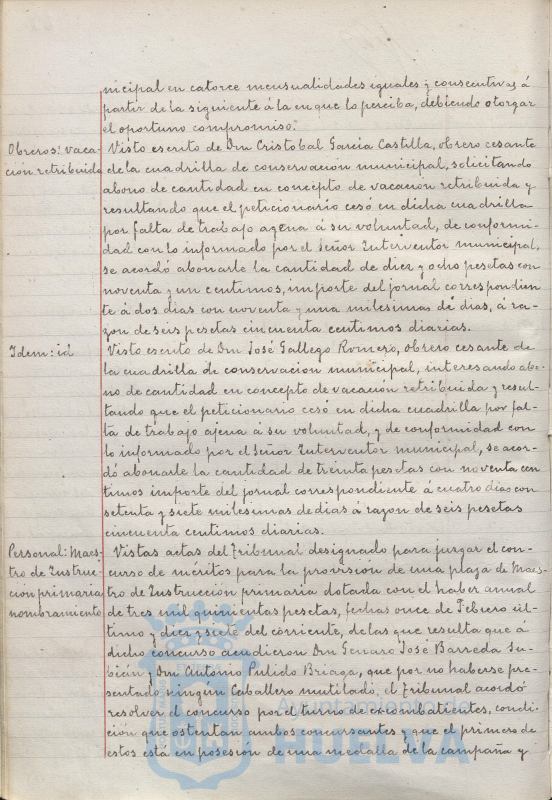 nicipal en catorce mensualidades iguales y consecutivas á
partir de la siguiente á la en que lo perciba, debiendo otorgar
el oportuno compromiso.
Obreros: vaca-
ción retribuida
Visto escrito de Don Cristobal Garcia Castilla, obrero cesante
de la cuadrilla de conservación municipal, solicitando
abono de cantidad en concepto de vacacion retribuida y
resultando que el peticionario cesó en dicha cuadrilla
por falta de trabajo agena á su voluntad, de conformi-
dad con lo informado por el Señor Interventor municipal,
se acordó abonarle la cantidad de diez y ocho pesetas con
noventa y un centimos, importe del jornal correspondien
te á dos dias con noventa y una milesimas de dias, á ra-
zon de seis pesetas cincuenta centimos diarias.
Idem: id
Visto escrito de Don José Gallego Romero, obrero cesante de
la cuadrilla de conservacion municipal, interesando abo-
no de cantidad en concepto de vacación retribuida y resul-
tando que el peticionario cesó en dicha cuadrilla por fal-
ta de trabajo ajena á su voluntad, y de conformidad con
lo informado por el Señor Interventor municipal, se acor-
dó abonarle la cantidad de treinta pesetas con noventa cen
timos importe del jornal correspondiente á cuatro dias con
setenta y siete milesimas de dias á razon de seis pesetas
cincuenta centimos diarias.
Personal: Maes-
tro de Instruc-
cion primaria
nombramiento
Vistas actas del Tribunal designado para juzgar el con-
curso de méritos para la provision de una plaza de Maes-
tro de Instruccion primaria dotada con el haber anual
de tres mil quinientas pesetas, fechas once de Febrero úl-
timo y diez y siete del corriente, de las que resulta que á
dicho concurso acudieron Don Genaro José Barreda Su-
bián y Don Antonio Pulido Briaga, que por no haberse pre-
sentado ningún Caballero mutilado, el Tribunal acordó
resolver el concurso por el turno de excombatientes, condi-
ción que ostentan ambos concursantes y que el primero de
estos está en posesión de una medalla de la campaña y
Ayuntamiento de
HUELVA